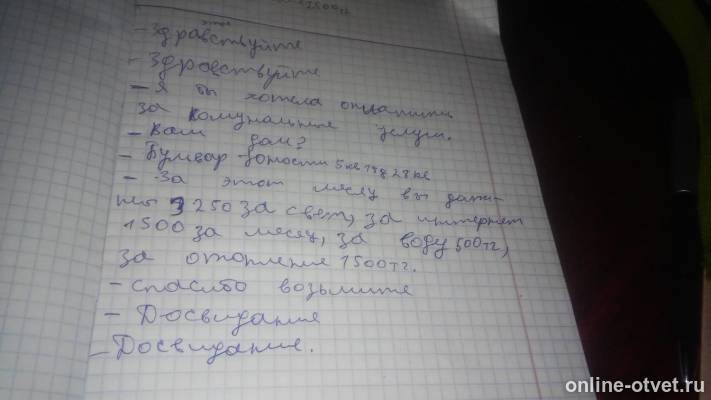 1500тг
этое
- Здравствуйте
- Здравствуйте
- Я бы хотела оплатить
за комунальные услуги.
- Вам дом?
- Бульвар юности 5 кв 28 кв
- За этот месяц вы долж-
ны 3250 за свет, за интернет
1500 за месяц, за воду 500тг,
за отопление 1500тг.
- спасибо возьмите
- Досвидание
- Досвидание.
online-otvet.ru